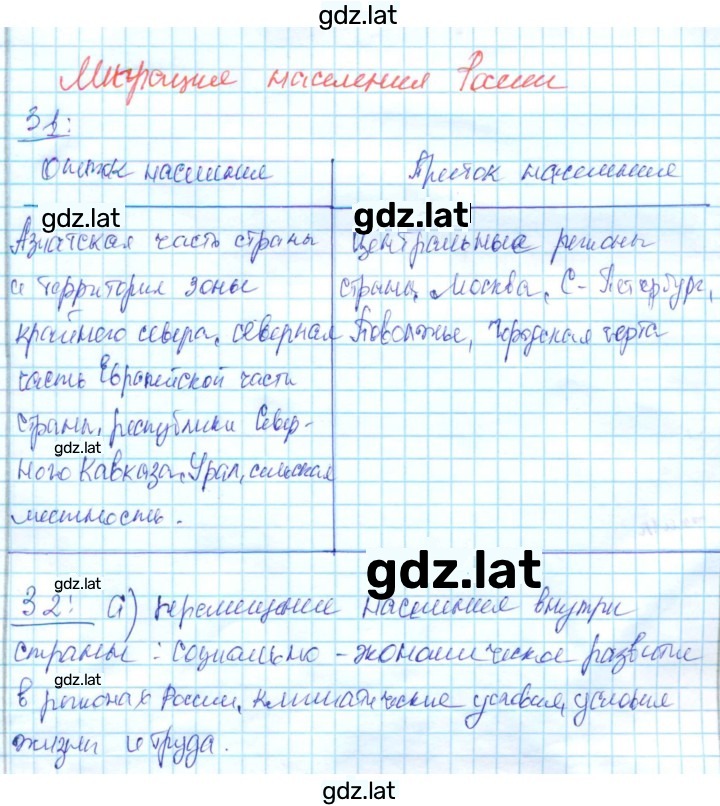 gdz.lat
Миграция населения России
31:
Отток населения
Приток населения
gdz.lat
gdz.lat
Азиатская часть страны
и территория зоны
крайнего севера, северная
часть Европейской части
страны, республики Север-
ного Кавказа, Урал, сельская
местность.
Центральные регионы
страны, Москва, С-Петербург,
Поволжье, городская черта
gdz.lat
gdz.lat
gdz.lat
gdz.lat
gdz.lat
32: а) перемещение населения внутри
страны: социально-экономическое развитие
в регионах России, климатические условия, условия
жизни и труда.
gdz.lat
gdz.lat
gdz.lat
gdz.lat
gdz.lat